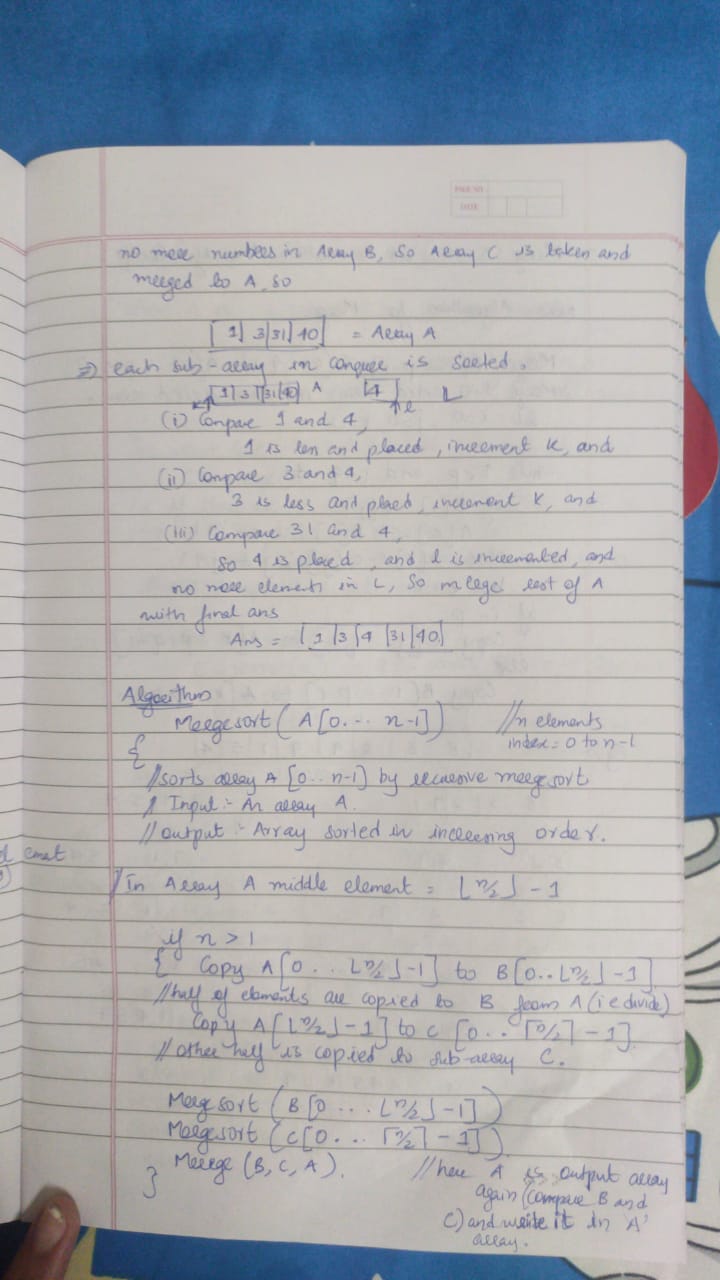 PAGE NO
DATE
no more numbers in Array B, So Array C is taken and
merged to A, so
| 1 | 3 | 31 | 40 | = Array A
⇒ each sub-array in conquer is sorted.
| 1 | 3 | 31 | 40 | A | 4 | l L
(i) Compare 1 and 4,
1 is less and placed, increment K, and
(ii) Compare 3 and 4,
3 is less and placed, increment K, and
(iii) Compare 31 and 4,
So 4 is placed, and l is incremented, and
no more elements in L, So merge rest of A
with final ans
Ans = | 1 | 3 | 4 | 31 | 40 |
Algorithm
Mergesort (A[0... n-1]) //n elements
index = 0 to n-1
{
//sorts array A [0.. n-1] by recursive mergesort
// Input :- An array A.
//output :- Array sorted in increasing order.
d
//In Array A middle element = ⌊n/2⌋ - 1
if n > 1
{ Copy A[0.. ⌊n/2⌋-1] to B[0..⌊n/2⌋-1]
//half of elements are copied to B from A (i e divide)
Copy A[⌊n/2⌋-1] to C [0.. ⌈n/2⌉ - 1].
// other half is copied to sub-array C.
Mergesort (B[0 ... ⌊n/2⌋-1])
Mergesort (C[0... ⌈n/2⌉ - 1]).
Merge (B, C, A). //here A is output array
} again (compare B and
C) and write it in 'A'
array.